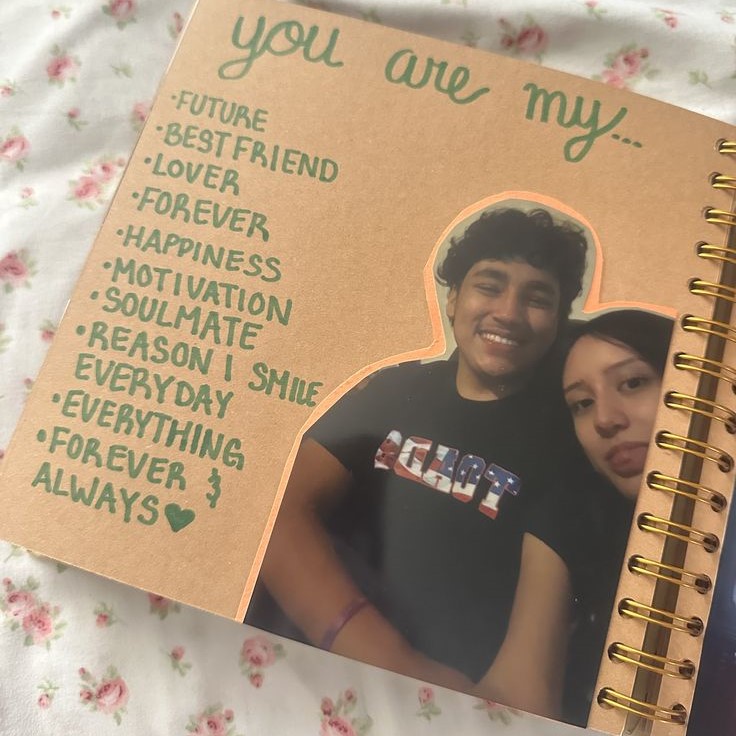 you are my...
·FUTURE
·BEST FRIEND
·LOVER
·FOREVER
·HAPPINESS
·MOTIVATION
·SOULMATE
·REASON I SMILE
EVERYDAY
·EVERYTHING
·FOREVER &
ALWAYS♥